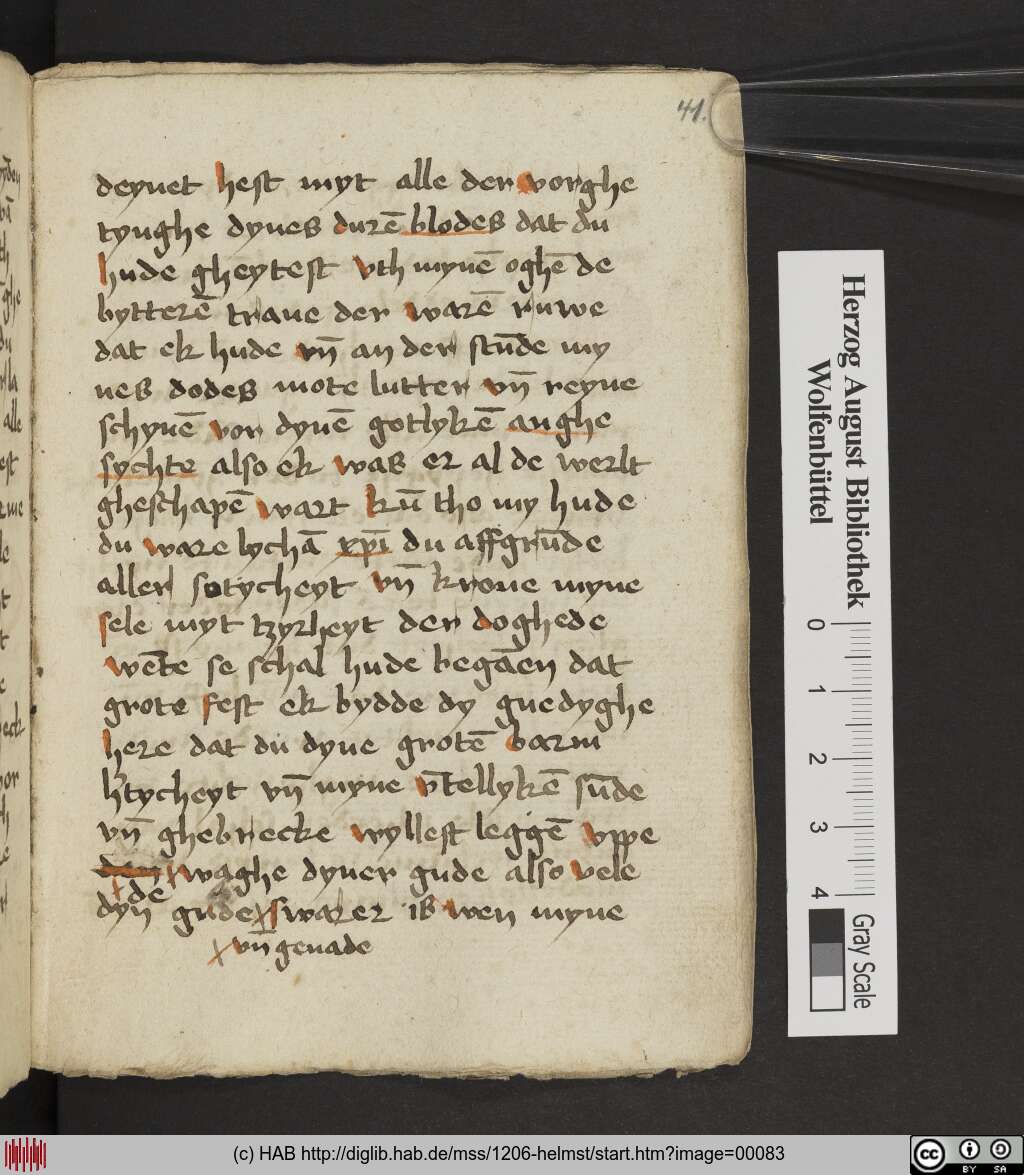 41.
deynet hest myt alle der vorghe
tynghe dynes durē blodes dat du
hude gheytest vth mynē oghē de
bytterē trane der warē ruwe
dat ek hude vn̄ an der stūde my
nes dodes mote lutter vn̄ reyne
schynē vor dynē gotlykē anghe
sychte also ek was er al de werlt
gheschapē wart kū tho my hude
du ware lychā xp̄i du affgrūde
aller sotycheyt vn̄ krone myne
sele myt tzyrheyt der doghede
wēte se schal hude begāen dat
grote fest ek bydde dy gnedyghe
here dat du dyne grotē barm
h̄tycheyt vn̄ myne v̄tellykē sūde
vn̄ ghebrecke wyllest leggē vppe
de waghe dyner gude also vele
dyn̄ gude swarer is wen myne
vn̄ genade
Herzog August Bibliothek
Wolfenbüttel
0 1 2 3 4
Gray Scale
(c) HAB http://diglib.hab.de/mss/1206-helmst/start.htm?image=00083
cc BY SA